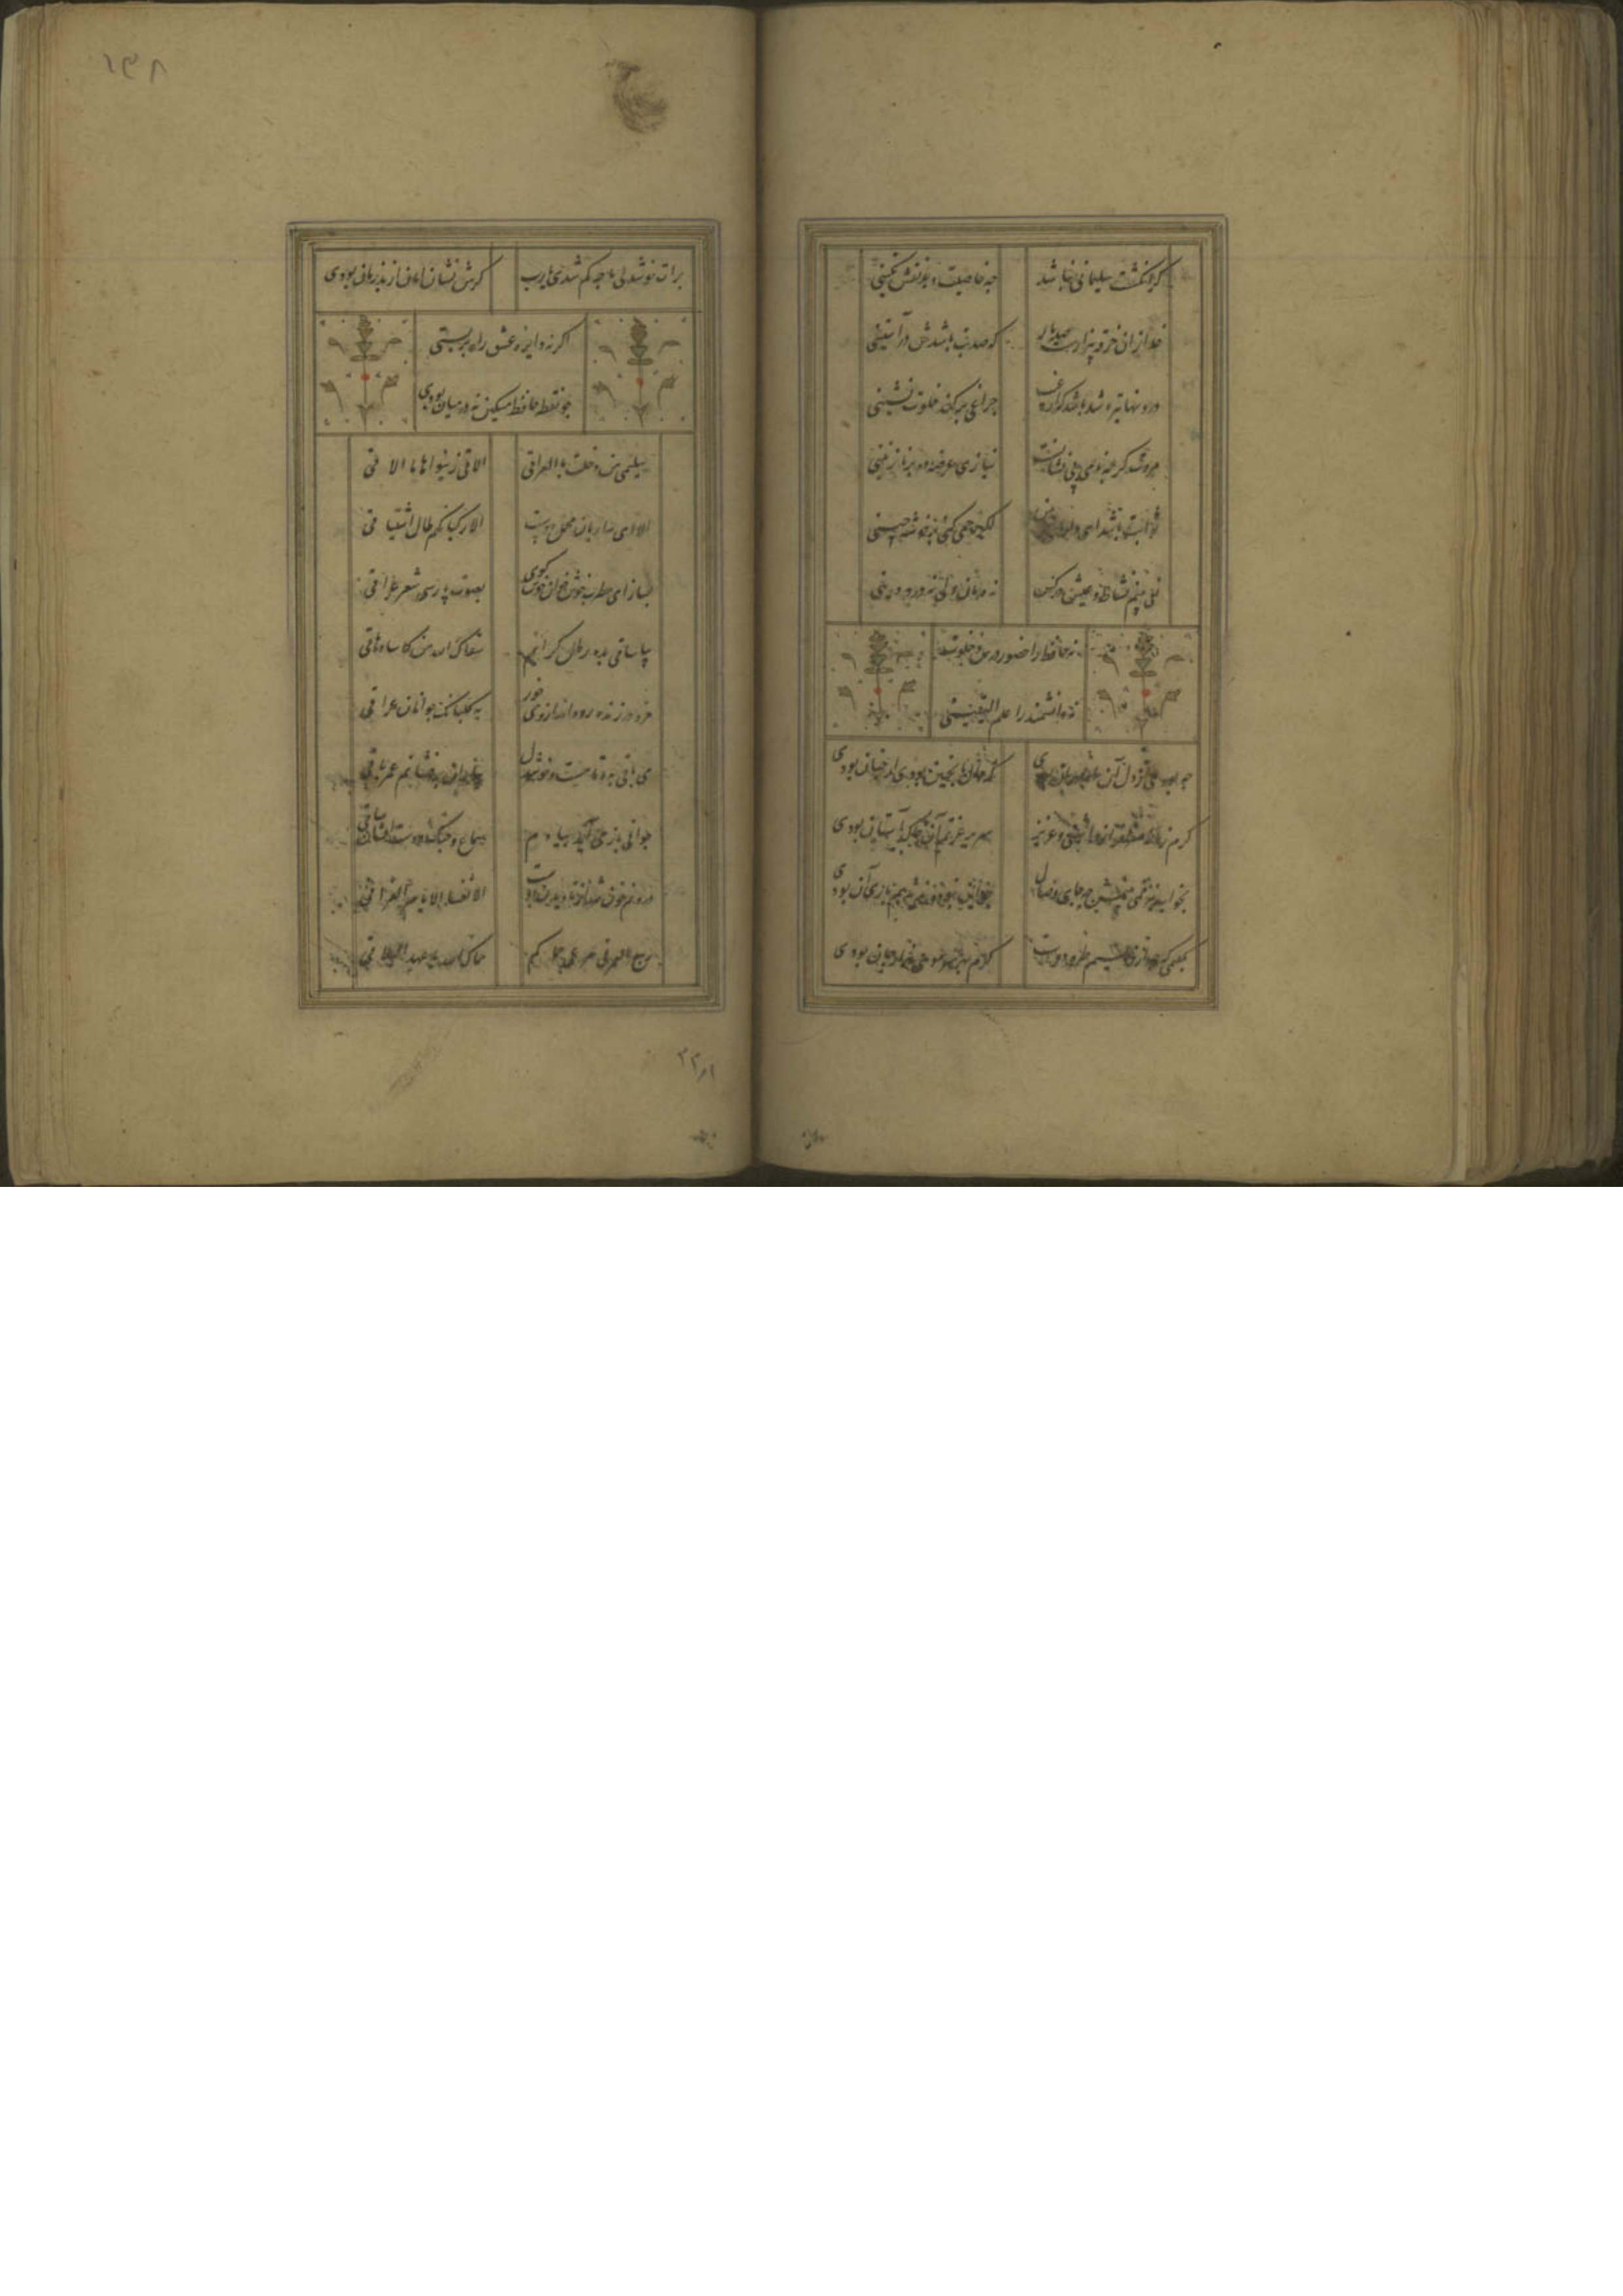 گر انگشت سلیمانی نباشد
چه خاصیت دهد نقش نگینی
خدا زان خرقه بیزارست صد بار
که صد بت باشدش در آستینی
درونها تیره شد باشد که از غیب
چراغی بر کند خلوت نشینی
مروت گر چه نامی بی نشانست
نیازی عرضه ده بر نازنینی
ثوابت باشد ای دارای خرمن
اگر رحمی کنی بر خوشه چینی
نمی بینم نشاط و عیش در کس
نه درمان دلی نه درد دینی
نه حافظ را حضور درس و خلوت
نه دانشمند را علم الیقینی
چه بودی ار دل آن
که حال ما نه چنین بودی ار چنان بودی
گرم زمانه سرافراز داشتی و عزیز
سریر عزتم آن خاک آستان بودی
بخواب نیز نمی بینمش چه جای وصال
چو این نبود و ندیدیم باری آن بودی
بگفتمی که چه ارزد نسیم طره دوست
گرم بهر سر مویی هزار جان بودی
برات خوشدلی ما چه کم شدی یارب
گرش نشان امان از بد زمان بودی
اگر نه دایره عشق راه بربستی
چو نقطه حافظ مسکین نه در میان بودی
سلیمی منذ حلت بالعراق
الاقی من نواها ما الاقی
الا ای ساربان محمل دوست
الی رکبانکم طال اشتیاقی
بساز ای مطرب خوش خوان خوش گوی
بصوت پارسی شعر عراقی
بیا ساقی بده رطل گرانم
سقاک الله من کاس دهاقی
خرد در زنده رود انداز و می خور
به گلبانگ جوانان عراقی
می باقی بده تا مست و خوشدل
بیاران برفشانم عمر باقی
جوانی باز می آرد بیادم
سماع چنگ و دست افشان ساقی
درونم خون شد از نادیدن دوست
الا تعسا لایام الفراقی
ربیع العمر فی مرعی حماکم
حماک الله یا عهد التلاقی
۱۳۸